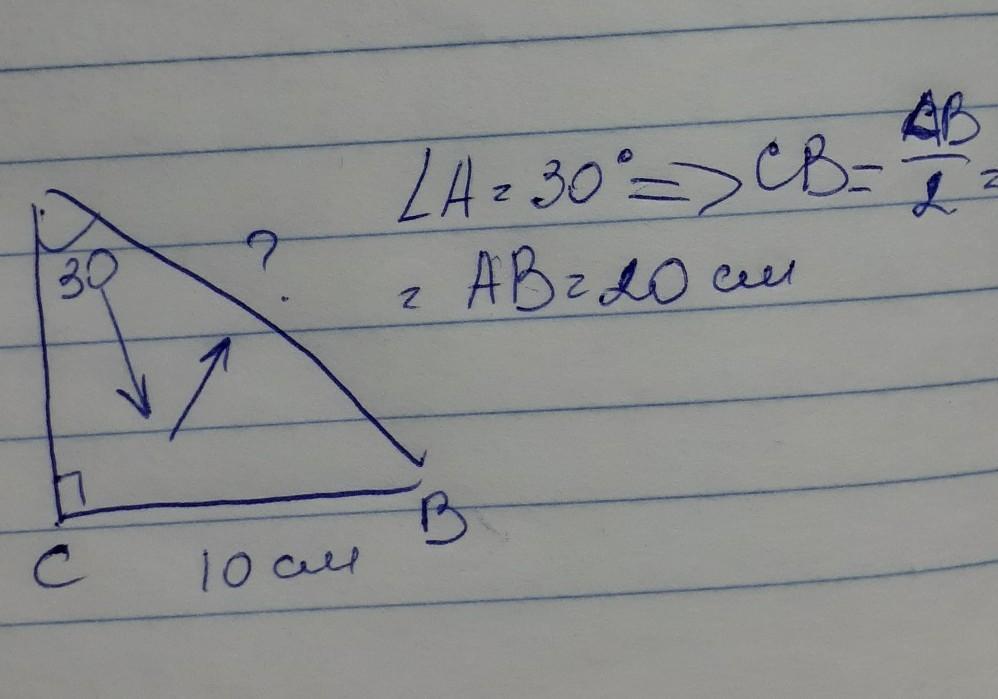 ∠A = 30° => CB = AB/2 =
= AB = 20 см
30
?
C
B
10 см